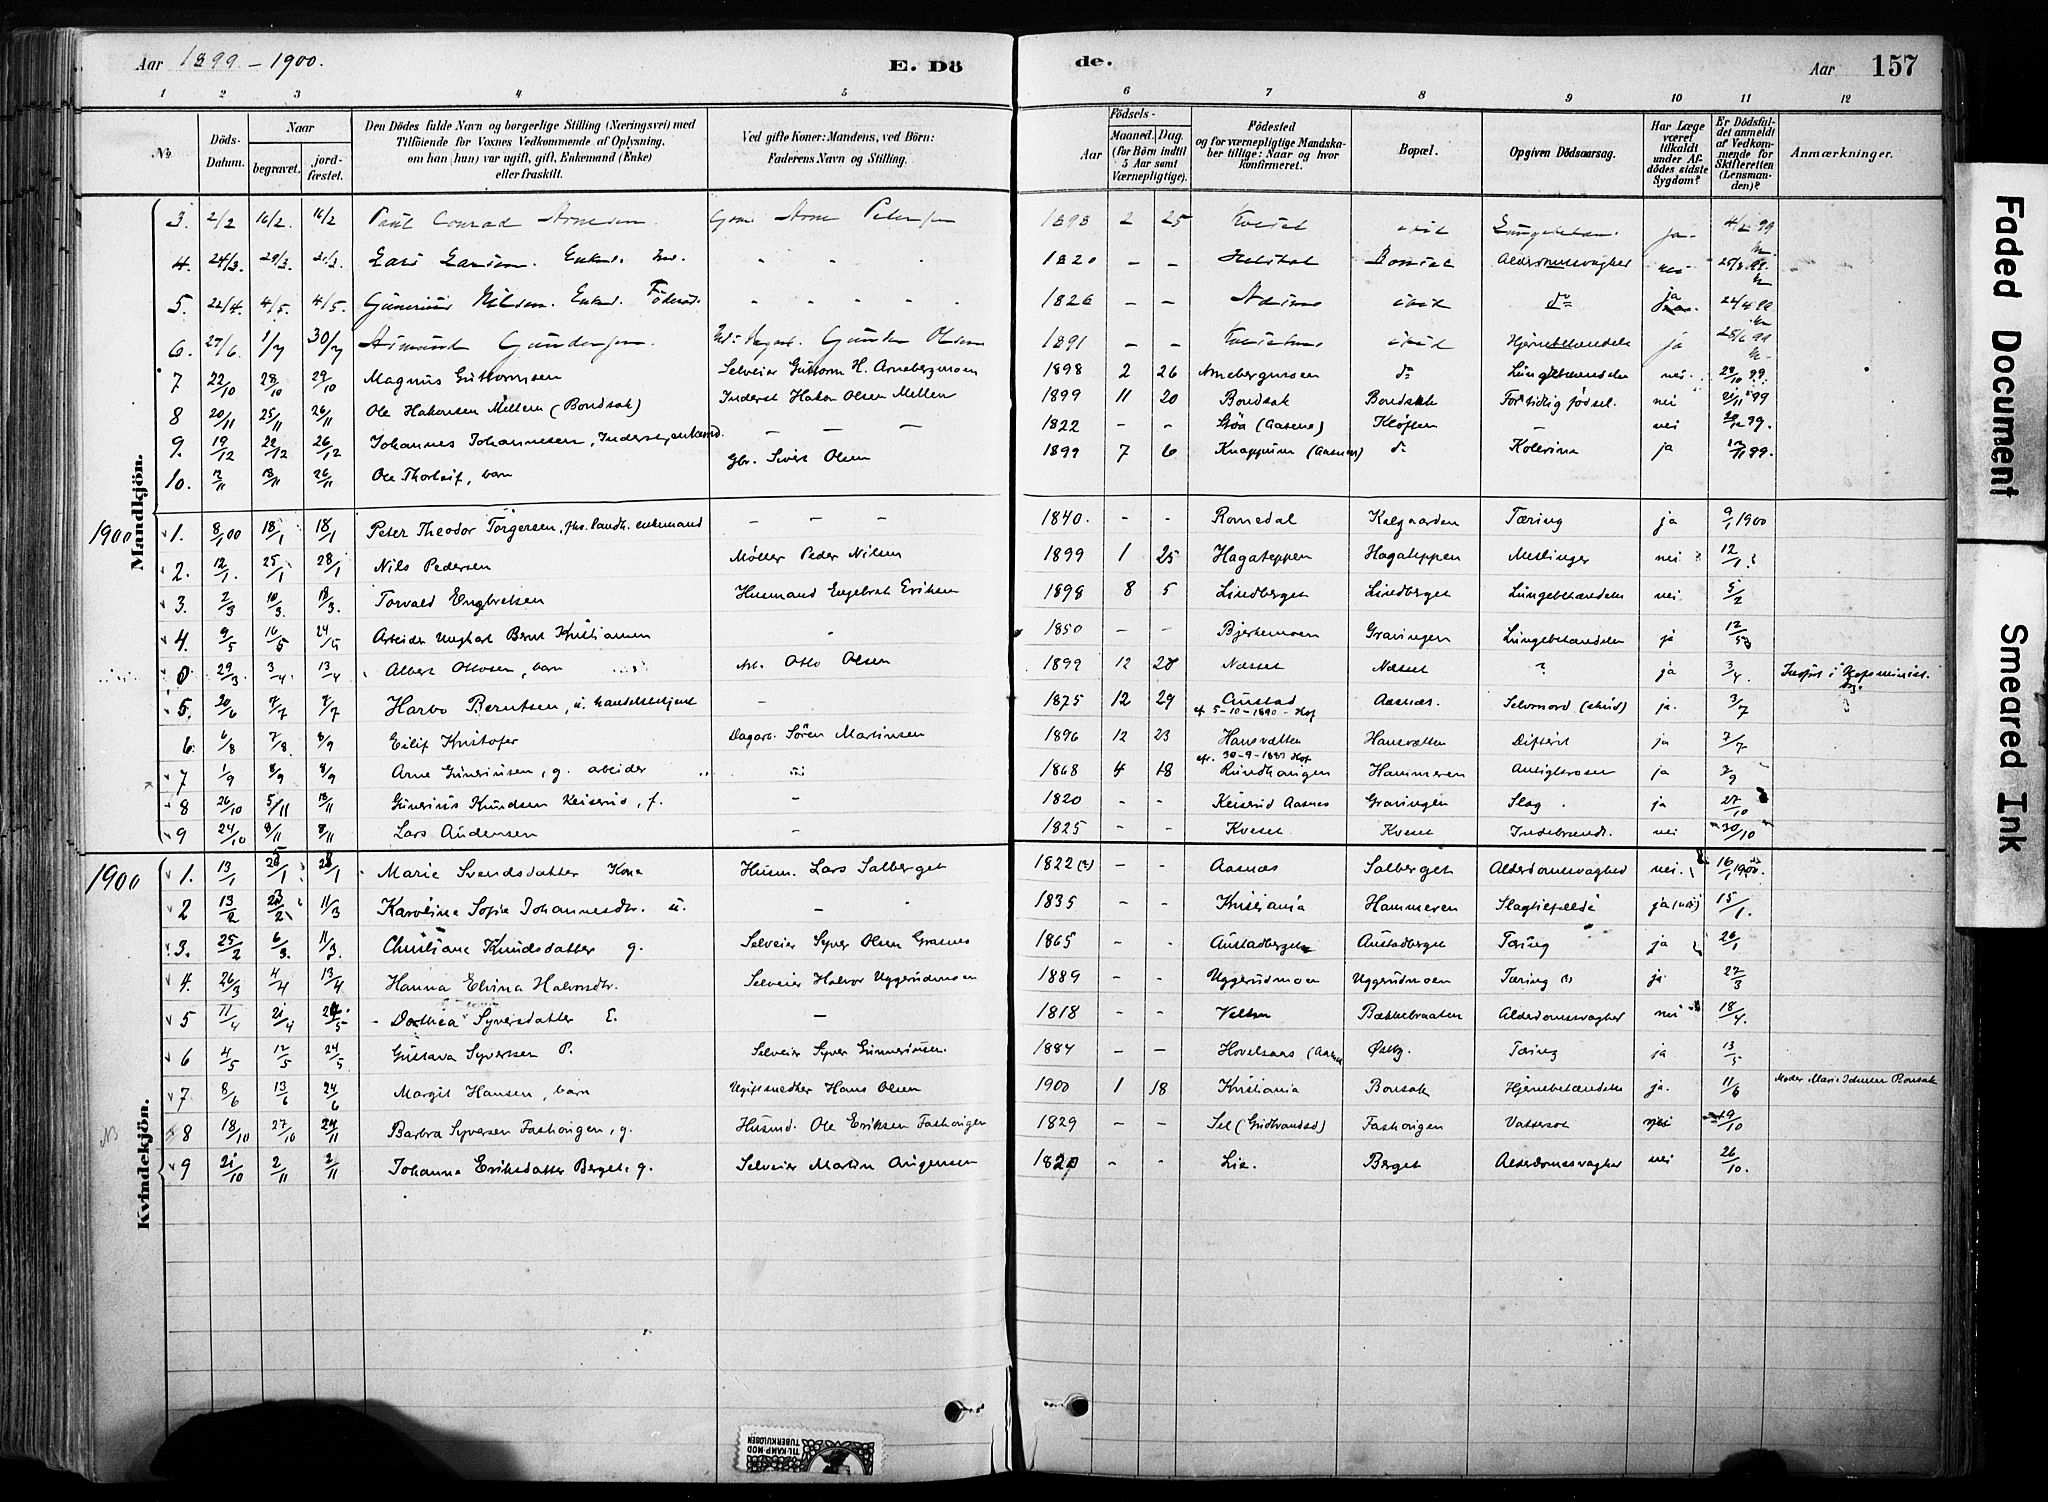 Aar 1899 - 1900. E. Dö de. Aar 157
1 2 3 4 5 6 7 8 9 10 11 12
No Döds-Datum. Naar begravet. jord-fæstet. Den Dödes fulde Navn og borgerlige Stilling (Næringsvei) med Tilföiende for Voxnes Vedkommende af Oplysning, om han (hun) var ugift, gift, Enkemand (Enke) eller fraskilt. Ved gifte Koner: Mandens, ved Börn: Faderens Navn og Stilling. Födsels- Aar Maaned. Dag. (for Börn indtil 5 Aar samt Værnepligtige). Födested og for værnepligtige Mandska-ber tillige: Naar og hvor konfirmeret. Bopæl. Opgiven Dödsaarsag. Har Læge været tilkaldt under Af-dödes sidste Sygdom? Er Dödsfal-det anmeldt af Vedkom-mende for Skifteretten (Lensman-den)? Anmærkninger.
Mandkjön.
3. 2/2 16/2 16/2 Paul Conrad Arnesen. Arne Petersen 1898 2 25 ibid ja. 4/2 99
4. 24/3. 29/3. Lars Larsen. Enkem. 1820 - - Alderdomssvaghed nei 25/3 99
5. 22/4. 4/5. 4/5. Gunerius Nilsen. Enkem. Föderåd. 1826 - - ibid do ja 24/4 99
6. 27/6. 1/7 30/7 Asmund Gundersen. Gunder Olsen 1891 - - ibid Hjernebetændelse ja 28/6 99
7 22/10 28/10 29/10 Magnus Guttormsen Selveier Guttorm H. Arnebergmoen 1898 2 26 Arnebergmoen do Lungebetændelse nei. 28/10 99.
8 20/11 25/11 26/11 Ole Hakonsen Mellem (Bondsak) Inderst Hakon Olsen Mellem 1899 11 20 Bondsak Bondsak For tidlig födsel. nei 21/11 99
9. 19/12 22/12 26/12 Johannes Johannesen, Inderst, enkemd. - - - 1822 - - (Aasnes) Kløften - nei 20/12 99.
10. 12/11 18/11 26/11 Ole Thorleif, barn Gbr. Sivert Olsen 1899 7 6 Knappum (Aasnes) do Kolerina ja 13/11 99.
1900 1. 8/1 00 18/1 18/1 Peter Theodor Torgersen, fhv. Landh. enkemand - - - 1840. - - Romedal Kalgaarden Tæring ja 9/1 1900
2. 12/1. 25/1 28/1 Nils Pedersen Møller Peder Nilsen 1899 1 25 Hagateppen Hagateppen Meslinger nei 12/1.
3. 2/3 10/3. 18/3. Torvald Engbretsen Husmand Engebret Eriksen 1898 8 5 Lindberget Lindberget Lungebetændelse nei 5/2
4. 9/5 16/5 24/5 Arbeider Ungkar Bernt Kristiansen 1850 - - Bjerkemoen Gravingen Lungebetændelse ja 12/5
0. 29/3. 3/4. 13/4 Albert Ottosen, barn Arb. Otto Olsen 1899 12 28 Næsset Næsset ? ja 3/4.
5. 20/6 7/7 7/7 Harbo Berntsen, u. handelsbetjent - 1875 12 29 Austad Aasnæs. Selvmord (skud) ja. 3/7
cf 5-10-1890-Hof
6. 6/8 7/8. 8/9 Eilif Kristofer Dagarb. Søren Martinsen 1896 12 23 Hansvætten Hansvætten Difterit ja 7/7
cfr. 30-9-1883 Hof
7 1/9 8/9 8/9 Arne Gunerinsen, g. arbeider 1868 4 18 Rundhaugen Hammeren ja 2/9
8 26/10 5/11 18/11 Gunerius Knudsen Keiserud, f. - 1820 - - Keiserud Aasnes Gravingen Slag. ja 27/10
9 24/10 8/11 8/11 Lars Andersen - 1825 - - Kveset Kveset Indebrændt. nei 30/10
Kvindekjön.
1900 1. 13/1 25/1 28/1 Marie Svendsdatter Kone Husm. Lars Salberget 1822 (?) - - Aasnæs Salberget Alderdomssvaghed nei. 16/1 1900.
2 13/2 23/2 11/3 Karoline Sofie Johannesdtr. u. - 1835 - - Kristiania Hammeren Slagtilfælde ja (nei) 15/1.
3. 25/2 6/3. 11/3. Christiane Knudsdatter g. Selveier Syver Olsen Grasnes 1865 - - Austadberget Austadberget Tæring ja 26/1
4. 26/3 4/4 13/4 Hanna Elvina Halvorsdtr. Selveier Halvor Uggerudmoen 1889 - - Uggerudmoen Uggerudmoen Tæring (?) ja 27/3
5 11/4 21/4 24/5 Dorthea Syversdatter E. - 1818 - - Bækkebraaten Alderdomssvaghed nei 18/4.
6 4/5 12/5 24/5 Gustava Syversen P. Selveier Syver Gunneriusen. 1884 - - Hovelsaas (Aasnes) Østby. Tæring ja 13/5
7 8/6 13/6 24/6 Margit Hansen, barn Ugiftsnedker Hans Olsen 1900 1 18 Kristiania Bonsak Hjernebetændelse ja. 11/6 Moder Marie Johnsen Bonsak
NB 8 18/10 27/10 24/11 Barbra Syversen Faskvigen, g. Husmd. Ole Eriksen Faskvigen 1829 - - Sel (Gudbrandsd) Faskvigen Vattersot nei 19/10
9 21/10 2/11 2/11 Johanne Eriksdatter Berget, g. Selveier Martin Augensen 1820 - - Lie. Berget Alderdomssvaghed nei 26/10.
TIL KAMP MOD
TUBERKULOSEN
Faded Document
Smeared Ink